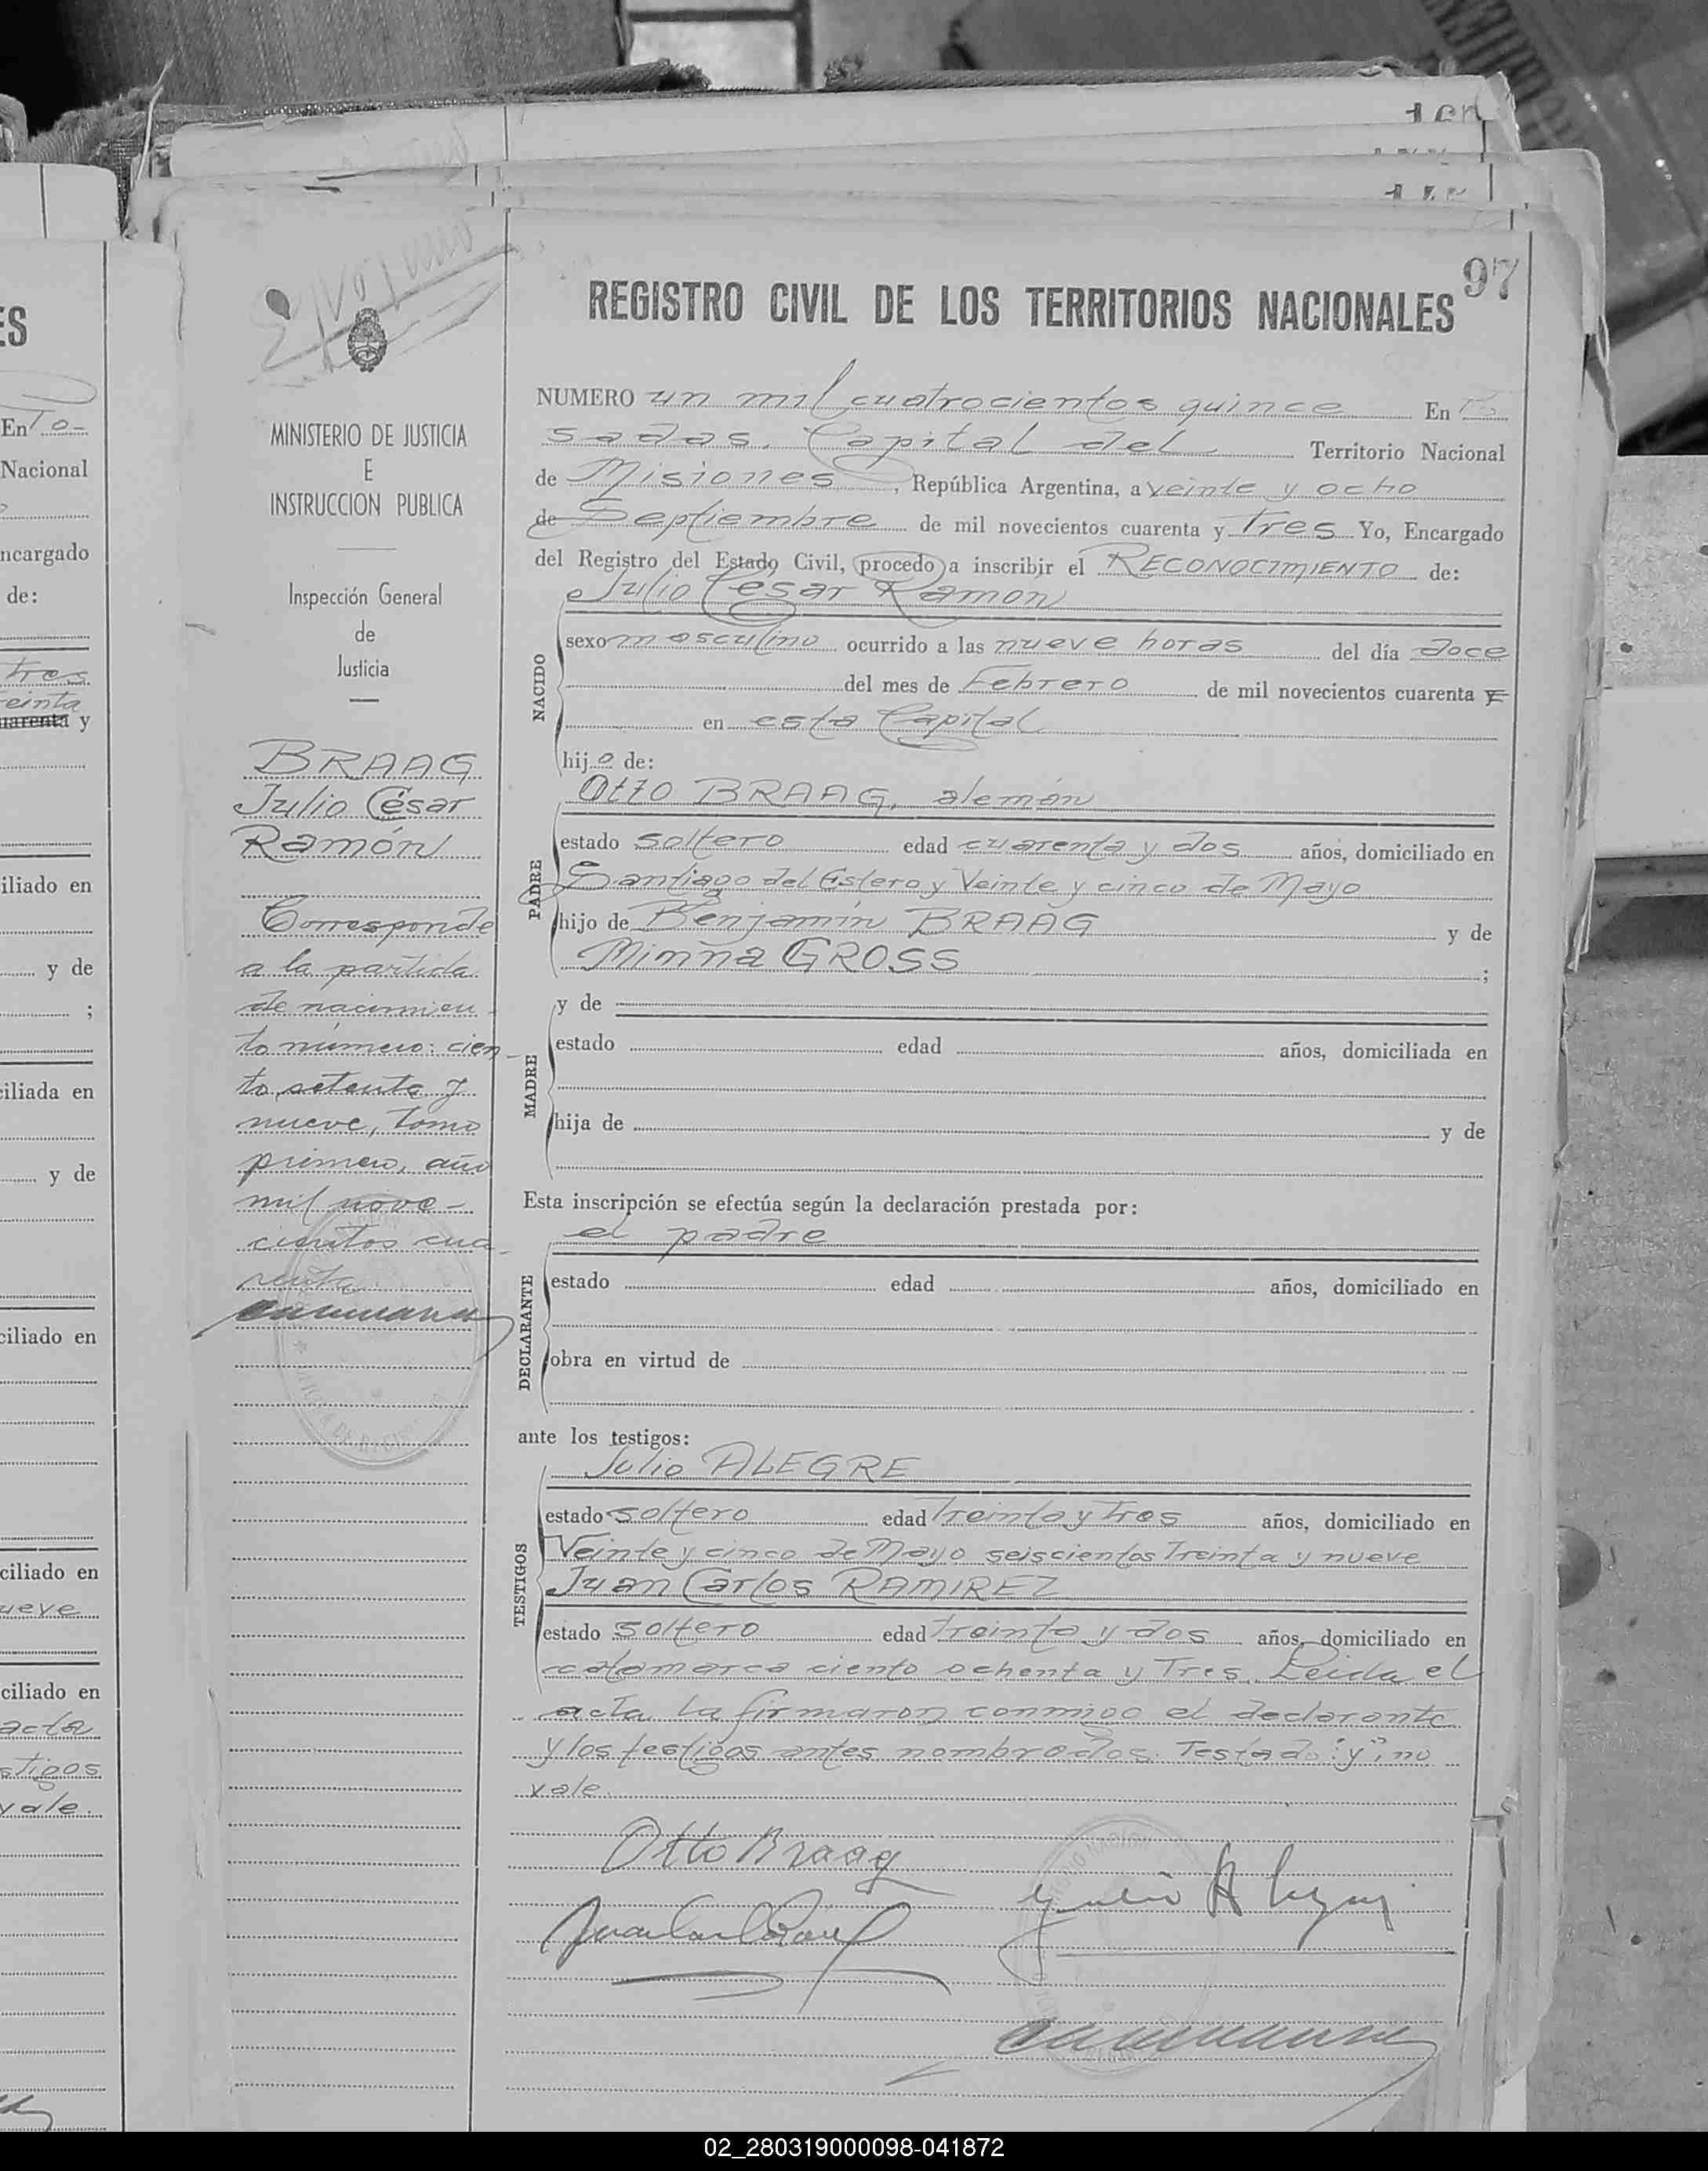 97
REGISTRO CIVIL DE LOS TERRITORIOS NACIONALES
MINISTERIO DE JUSTICIA
E
INSTRUCCION PUBLICA
Inspección General
de
Justicia
BRAAG
Julio César
Ramón
Corresponde
a la partida
de nacimien-
to número: cien-
to setenta y
nueve, tomo
primero, año
mil nove-
cientos cua-
renta
NUMERO un mil cuatrocientos quince En Po
sadas, Capital del Territorio Nacional
de Misiones, República Argentina, a veinte y ocho
de Septiembre de mil novecientos cuarenta y Tres Yo, Encargado
del Registro del Estado Civil, procedo a inscribir el RECONOCIMIENTO de:
Julio César Ramón
NACIDO
sexo masculino ocurrido a las nueve horas del día doce
del mes de Febrero de mil novecientos cuarenta y
en esta Capital
hijo de:
Otto BRAAG, alemán
PADRE
estado soltero edad cuarenta y dos años, domiciliado en
Santiago del Estero y Veinte y cinco de Mayo
hijo de Benjamín BRAAG y de
Minna GROSS ;
y de
MADRE
estado edad años, domiciliada en
hija de y de
Esta inscripción se efectúa según la declaración prestada por:
el padre
DECLARANTE
estado edad años, domiciliado en
obra en virtud de
ante los testigos:
Julio ALEGRE
TESTIGOS
estado soltero edad Treinta y Tres años, domiciliado en
Veinte y cinco de Mayo seiscientos Treinta y nueve
Juan Carlos RAMIREZ
estado soltero edad Treinta y dos años, domiciliado en
catamarca ciento ochenta y Tres. Leida el
acta la firmaron conmigo el declarante
y los testigos antes nombrados. Testado: "y"; no
vale.
Otto Braag
02_280319000098-041872